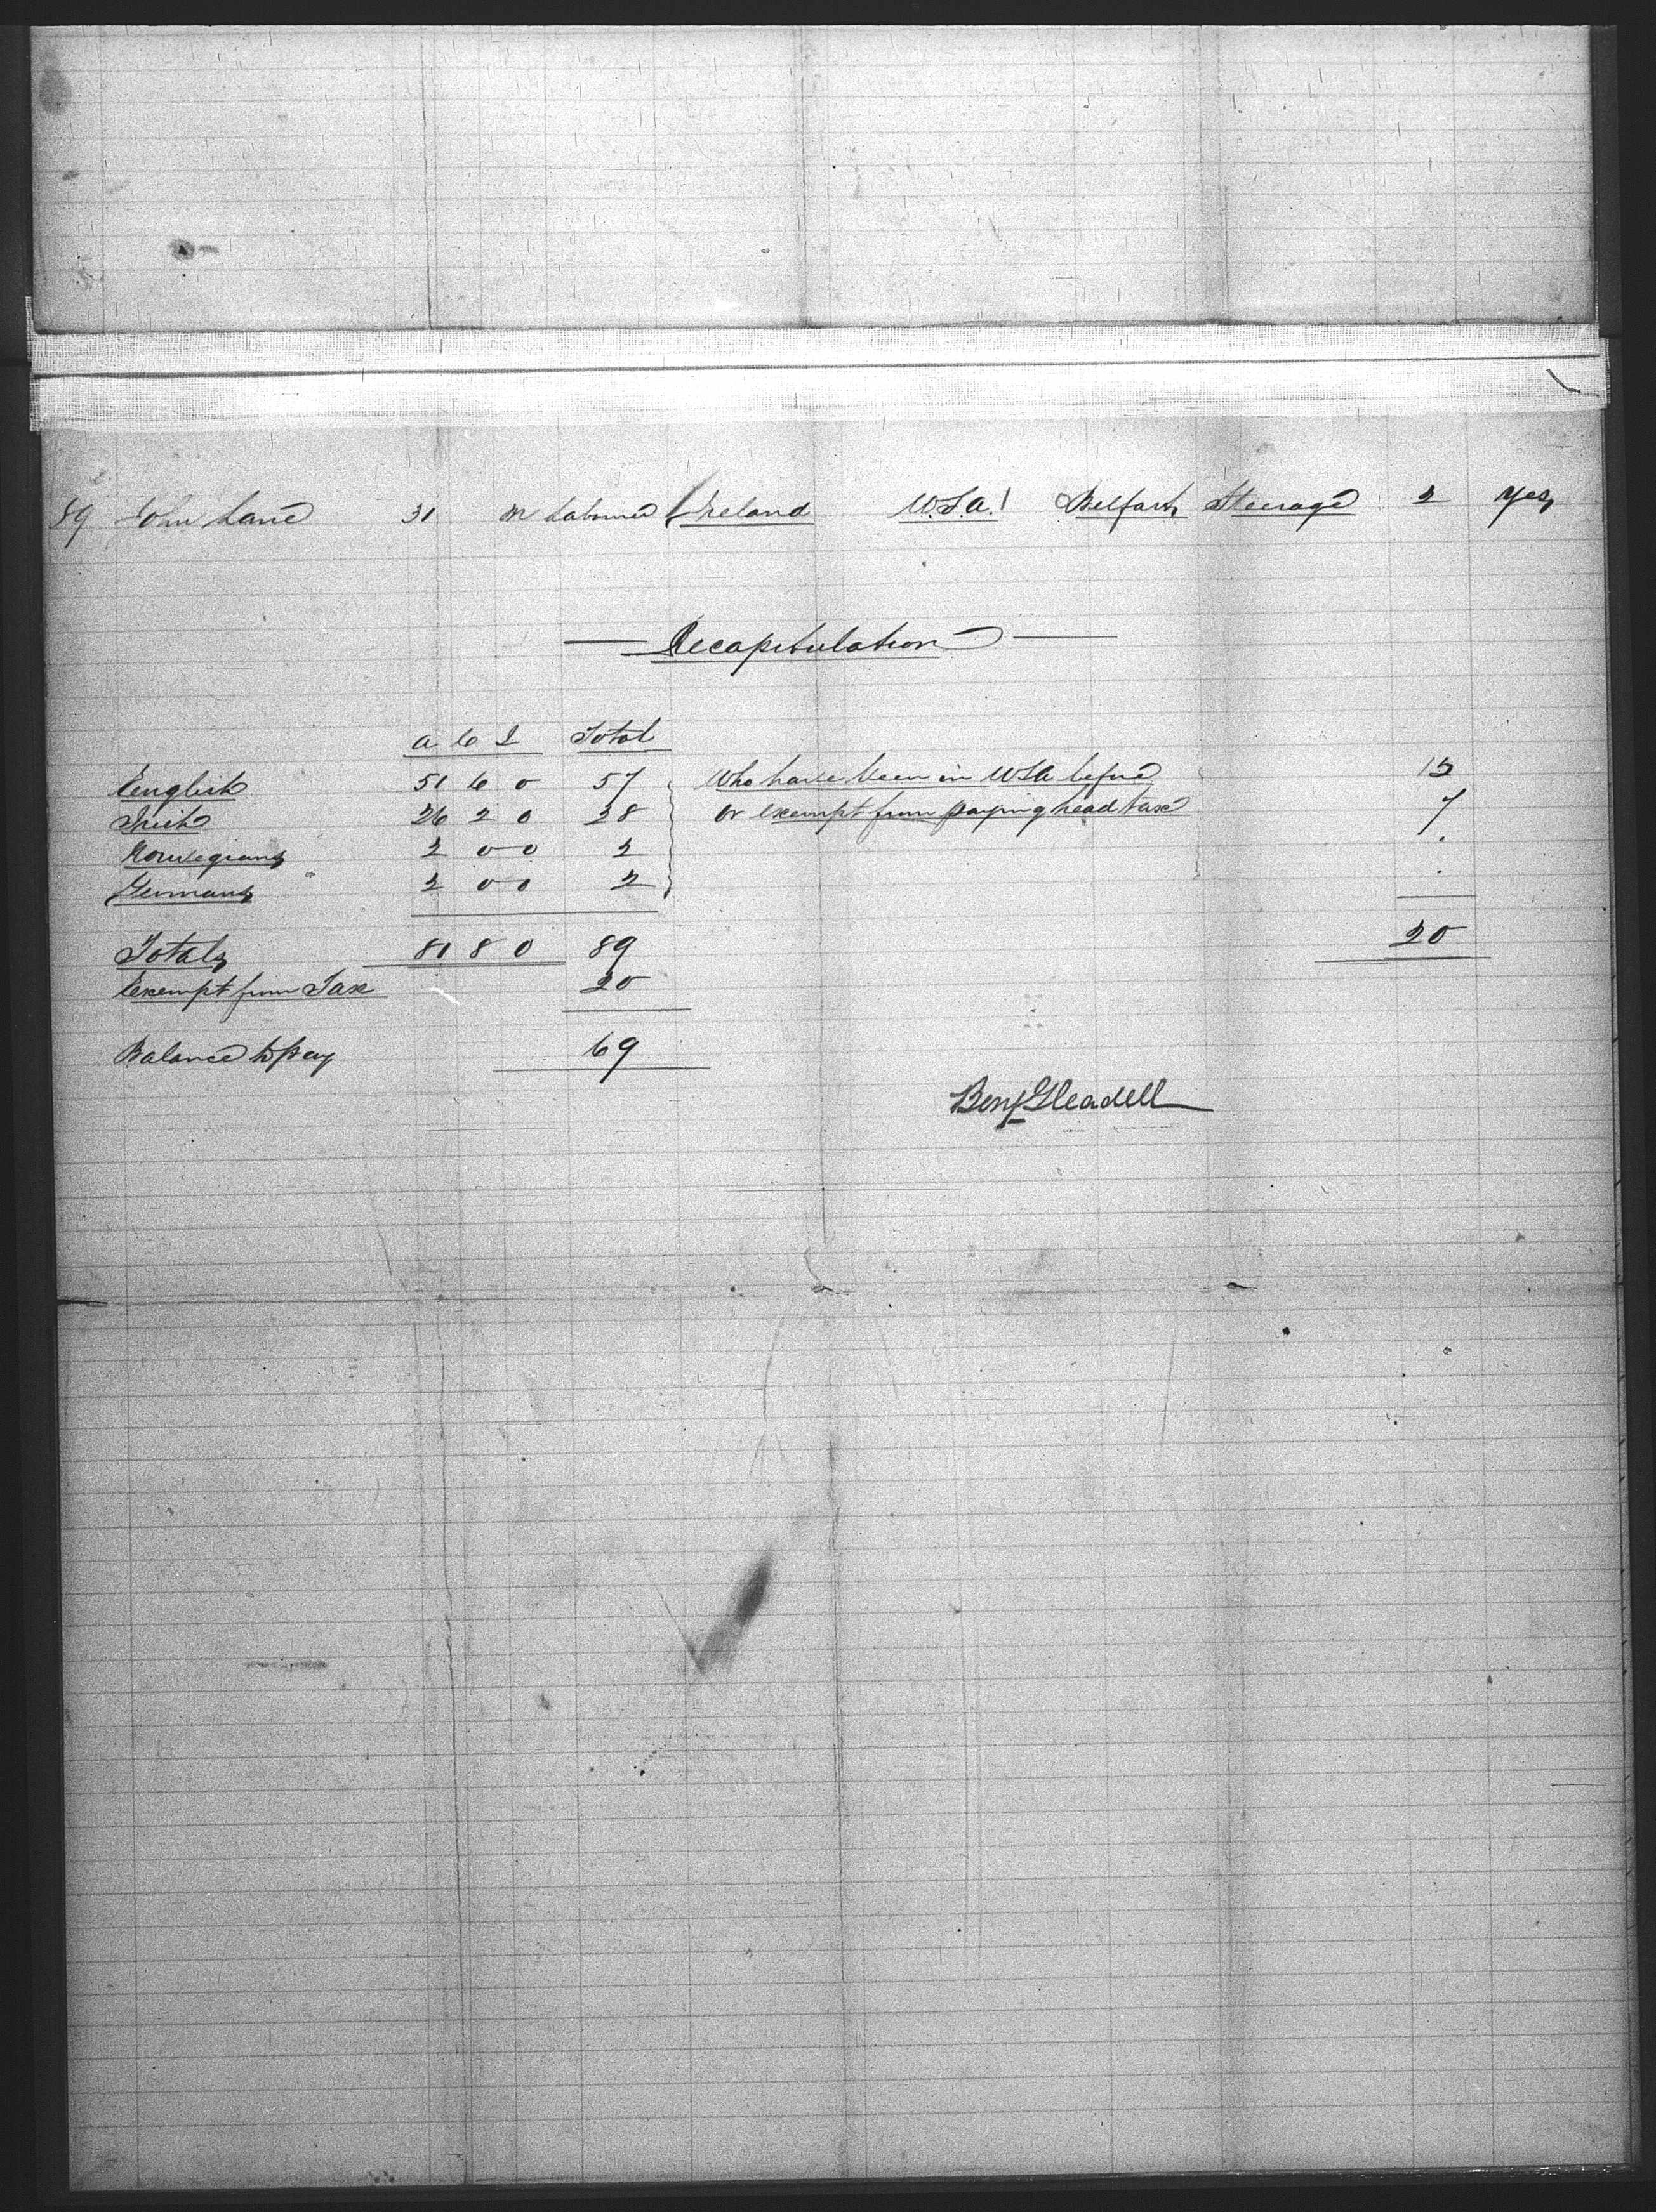 89 John Lane 31 m Labourer Ireland U.S.A. Belfast Steerage 2 Yes
Recapitulation
A C I Total
English 51 6 0 57 Who have been in USA before 13
Irish 26 2 0 28 or exempt from paying head tax 7
Norwegians 2 0 0 2 .
Germans 2 0 0 2 .
Totals 81 8 0 89 20
Exempt from Tax 20
Balance to pay 69
Benj Gleadell